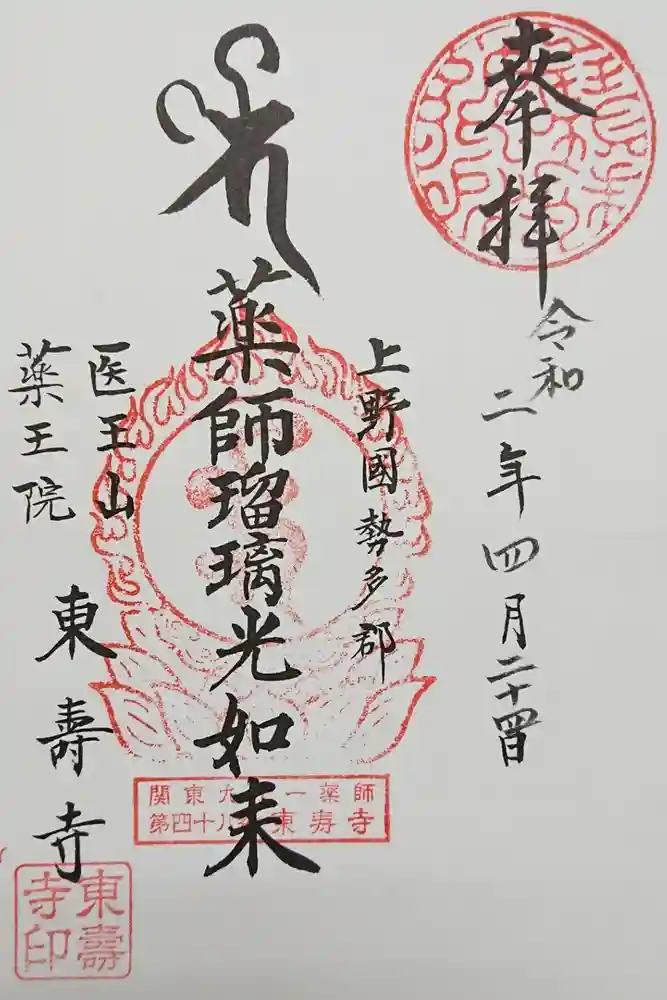 奉拝
令和二年四月二十四日
上野國勢多郡
薬師瑠璃光如来
医王山
薬王院
東壽寺
関東九 一薬師
第四十八 東寿寺
東壽
寺印